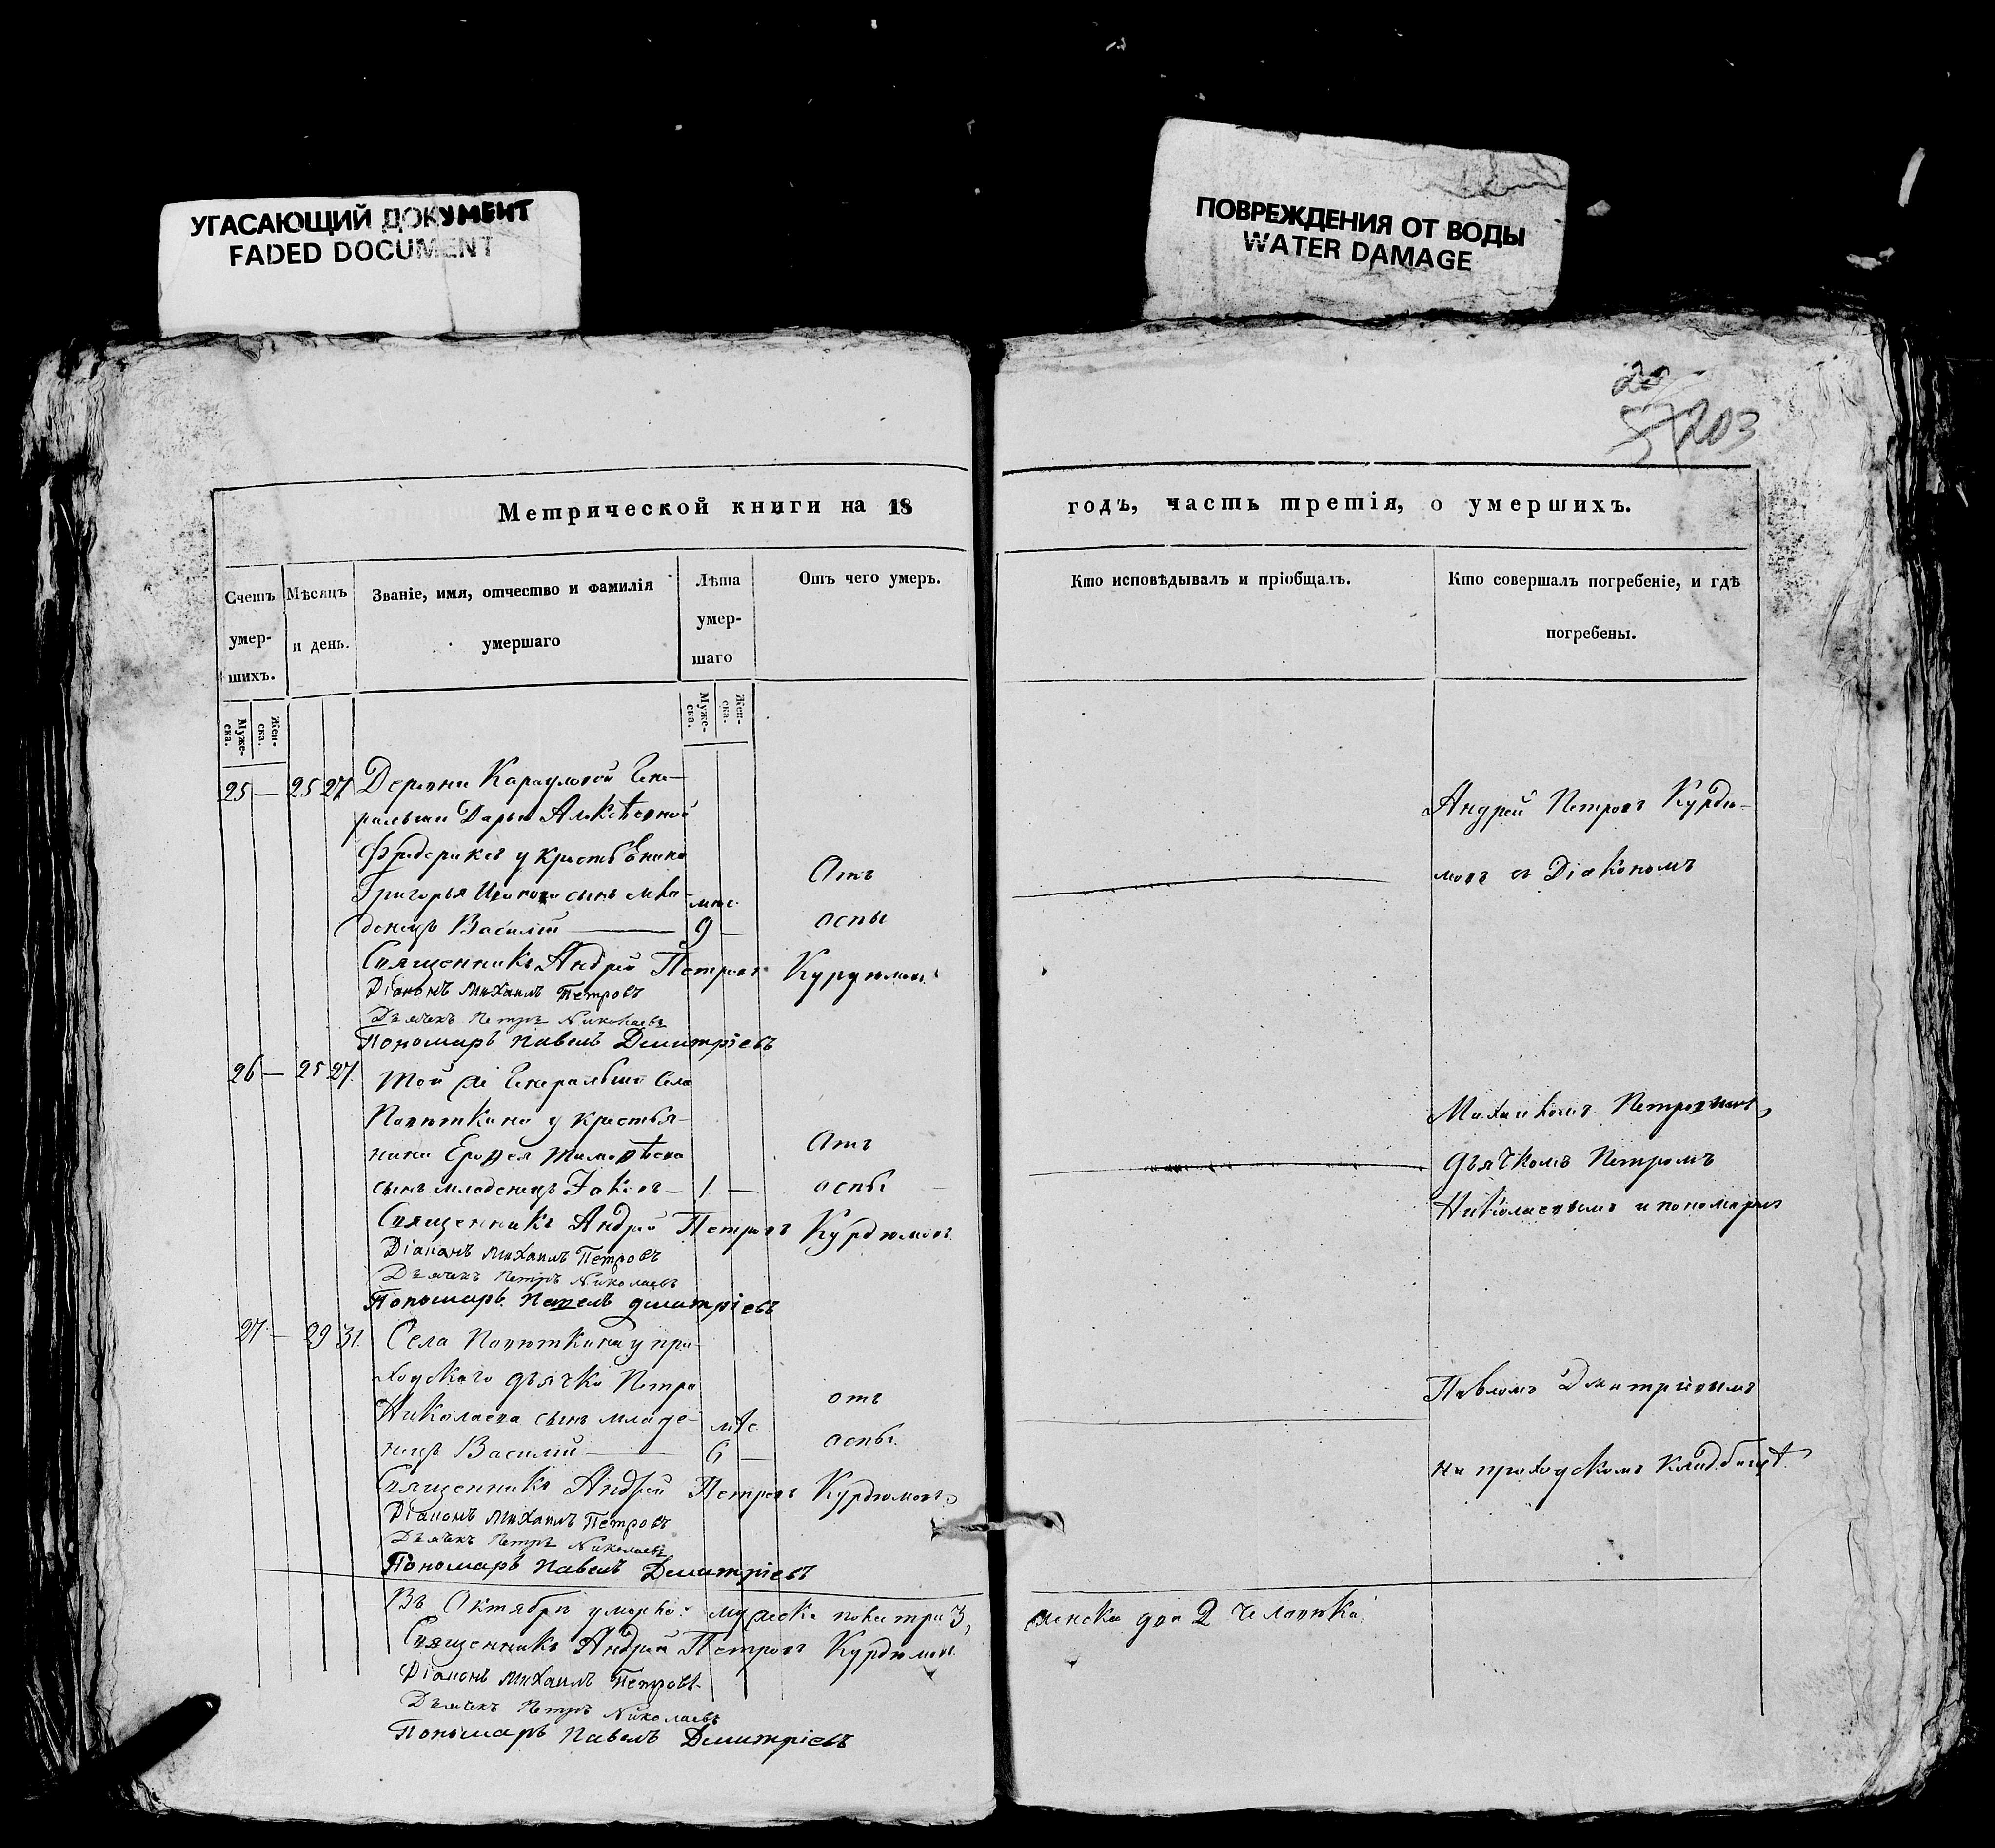 УГАСАЮЩИЙ ДОКУМЕНТ
FADED DOCUMENT
ПОВРЕЖДЕНИЯ ОТ ВОДЫ
WATER DAMAGE
203
Метрической книги на 18
годъ, часть третія, о умершихъ.
Счетъ умер-шихъ.
Мѣсяцъ и день.
Званіе, имя, отчество и фамилія
умершаго
Лѣта
умер-
шаго
Отъ чего умеръ.
Кто исповѣдывалъ и пріобщалъ.
Кто совершалъ погребеніе, и гдѣ
погребены.
Муже-ска.
Жен-ска.
Муже-ска.
Жен-ска.
25 — 25 27 Деревни Карауловой Гене-
ральши Дарьи Алексѣевной
Фридериксъ у крестьенина
Григорья сынъ мла-
денецъ Василій — 9 —
Отъ
оспы
Андрей Петровъ Курдю-
мовъ съ Діакономъ
Священникъ Андрей Петровъ Курдюмовъ
Діаконъ Михаилъ Петровъ
Дьячекъ Петръ Николаевъ
Пономарь Павелъ Дмитріевъ
26 — 25 27. Той же Генеральши Села
у крестья-
нина Ерофея Тимофѣева
сынъ младенецъ Іаковъ — 1 —
Отъ
оспы
Михаиломъ Петровымъ,
дьячкомъ Петромъ
Николаевымъ и пономаремъ
Священникъ Андрей Петровъ Курдюмовъ
Діаконъ Михаилъ Петровъ
Дьячекъ Петръ Николаевъ
Пономарь Павелъ Дмитріевъ
27 — 29 31. Села у при-
ходскаго дьячка Петра
Николаева сынъ младе-
нецъ Василій — мѣс. 6 —
отъ
оспы.
Павломъ Дмитріевымъ
на приходскомъ кладбищѣ
Священникъ Андрей Петровъ Курдюмовъ
Діаконъ Михаилъ Петровъ
Дьячекъ Петръ Николаевъ
Пономарь Павелъ Дмитріевъ
Въ Октябрѣ умерло: мужеска пола три 3, женска два 2 человѣка.
Священникъ Андрей Петровъ Курдюмовъ
Діаконъ Михаилъ Петровъ
Дьячекъ Петръ Николаевъ
Пономарь Павелъ Дмитріевъ